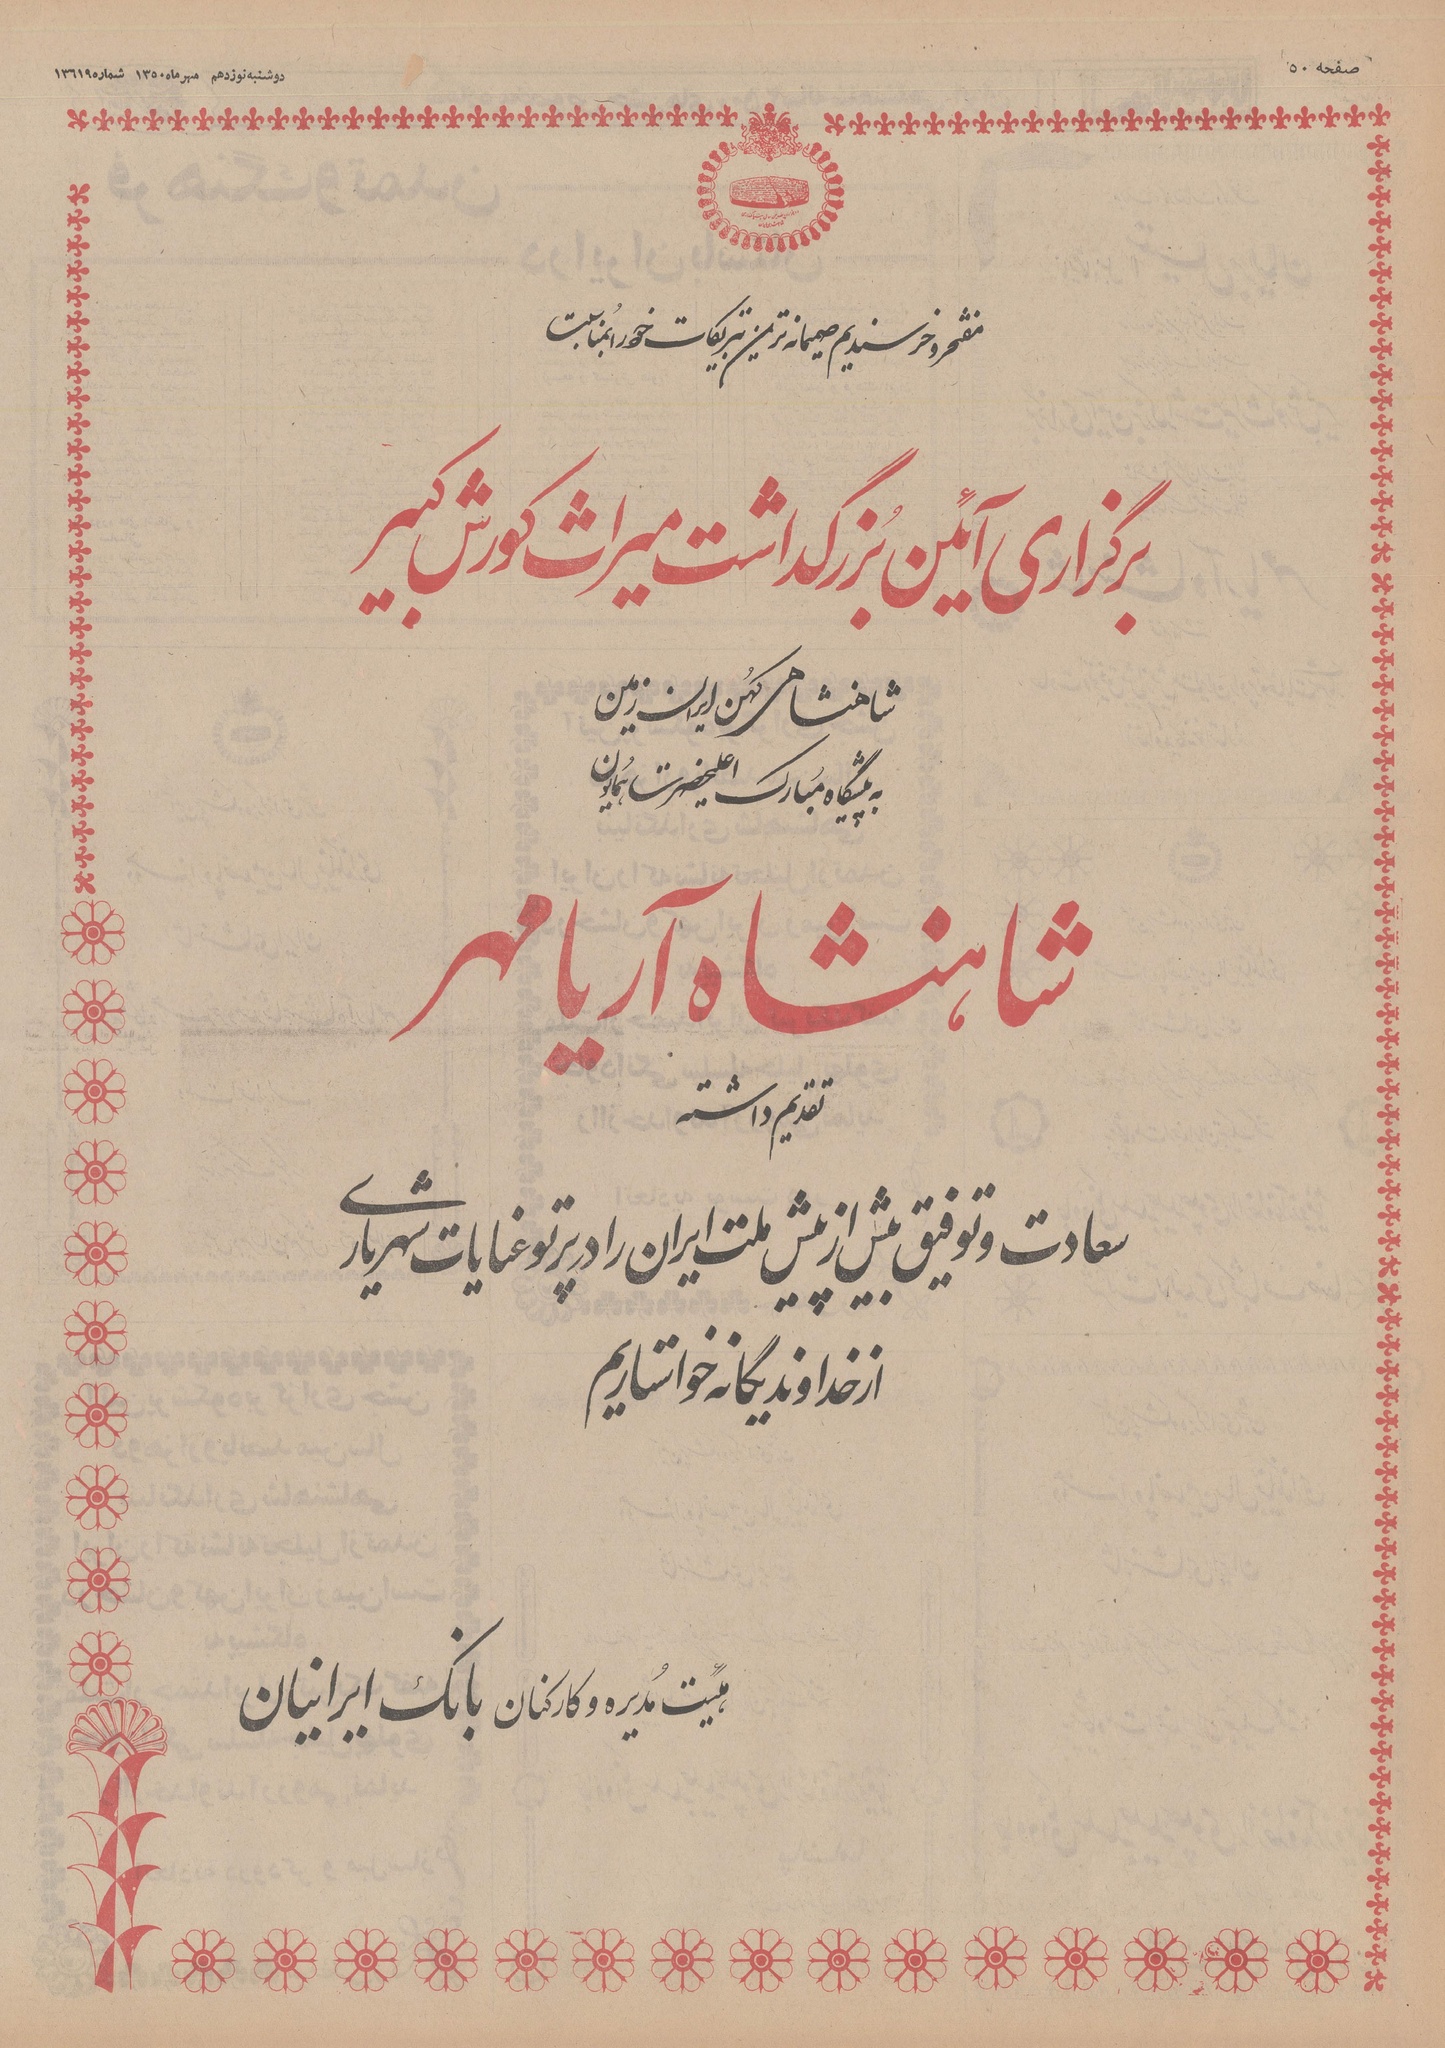 صفحه ۵۰
دوشنبه نوزدهم مهرماه ۱۳۵۰ شماره ۱۳۶۱۹
مفتخر و خرسندیم صمیمانه‌ترین تبریکات خود را بمناسبت
برگزاری آئین بُزرگداشت میراث کورش کبیر
شاهنشاهی کهُن ایران زمین
به پیشگاه مُبارک اعلیحضرت هُمایون
شاهنشاه آریامهر
تقدیم داشته
سعادت و توفیق بیش از پیش ملت ایران را در پرتو عنایات شهریاری
از خداوند یگانه خواستاریم
هیئت مُدیره و کارکنان بانک ایرانیان